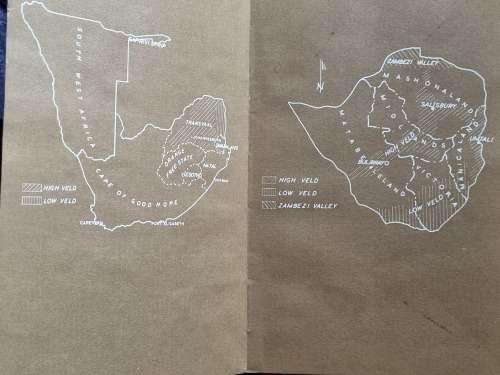 CAPRIVI STRIP
SOUTH WEST AFRICA
TRANSVAAL
ORANGE
FREE STATE
NATAL
LESOTHO
CAPE OF GOOD HOPE
CAPETOWN
PORT ELIZABETH
HIGH VELD
LOW VELD
ZAMBEZI VALLEY
MASHONALAND
SALISBURY
UMTALI
MIDLANDS
HIGH VELD
BULAWAYO
MATABELELAND
VICTORIA
MANICALAND
LOW VELD
N
HIGH VELD
LOW VELD
ZAMBEZI VALLEY